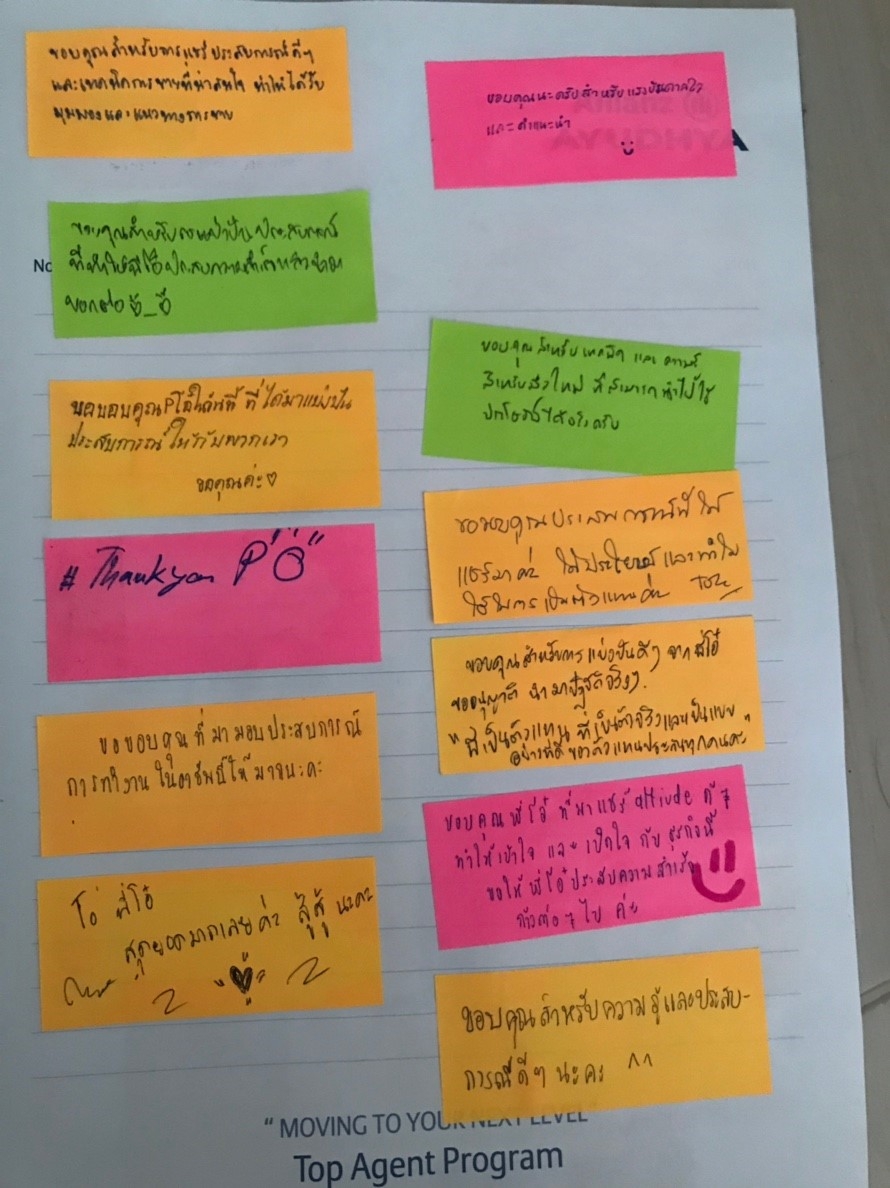 ขอบคุณสำหรับการแชร์ประสบการณ์ดีๆ
และเทคนิคการขายที่น่าสนใจ ทำให้ได้รับ
มุมมองและแนวทางการขาย
ขอบคุณสำหรับการแบ่งปันประสบการณ์
ที่ทำให้พี่โอ๋ประสบความสำเร็จแล้วนำมา
บอกต่อ
ขอขอบคุณPโอ๋ในวันนี้ ที่ได้มาแบ่งปัน
ประสบการณ์ให้กับพวกเรา
ขอคุณค่ะ♡
# Thank you P'โอ๋"
ขอขอบคุณที่มามอบประสบการณ์
การทำงานในอาชีพนี้ให้
โอ๋ พี่โอ๋
สุดยอดมากเลยค่ะ สู้สู้ นะคะ
ขอบคุณนะครับสำหรับแรงบันดาลใจ
และคำแนะนำ
ขอบคุณสำหรับเทคนิค และ ความรู้
สำหรับสิ่งใหม่ ที่สามารถนำไปใช้
ประโยชน์ได้จริงครับ
ขอขอบคุณประสบการณ์ที่ได้
แชร์มาค่ะ ได้ประโยชน์ และนำไป
ใช้ในการเป็นตัวแทนค่ะ
ขอบคุณสำหรับการแบ่งปันดีๆ จากพี่โอ๋
ขออนุญาติ นำมาปฏิบัติจริงๆ.
"พี่เป็นตัวแทน ที่เป็นตัวจริงและเป็นแบบ
อย่างที่ดี ของตัวแทนประกันทุกคนค่ะ"
ขอบคุณพี่โอ๋ ที่มาแชร์ attitude ดี ๆ
ทำให้เข้าใจ และ เปิดใจ กับ ธุรกิจนี้
ขอให้ พี่โอ๋ประสบความสำเร็จ
ก้าวต่อ ๆ ไป ค่ะ
ขอบคุณสำหรับความรู้และประสบ-
การณ์ดีๆ นะคะ ^^
" MOVING TO YOUR NEXT LEVEL"
Top Agent Program